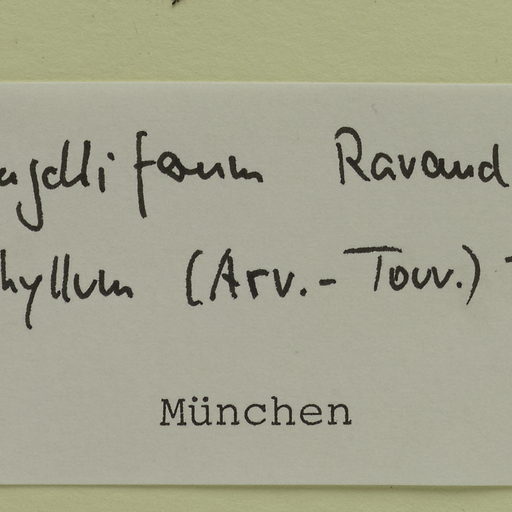 agelliforum Ravaud
hyllum (Arv.-Touv.)
München